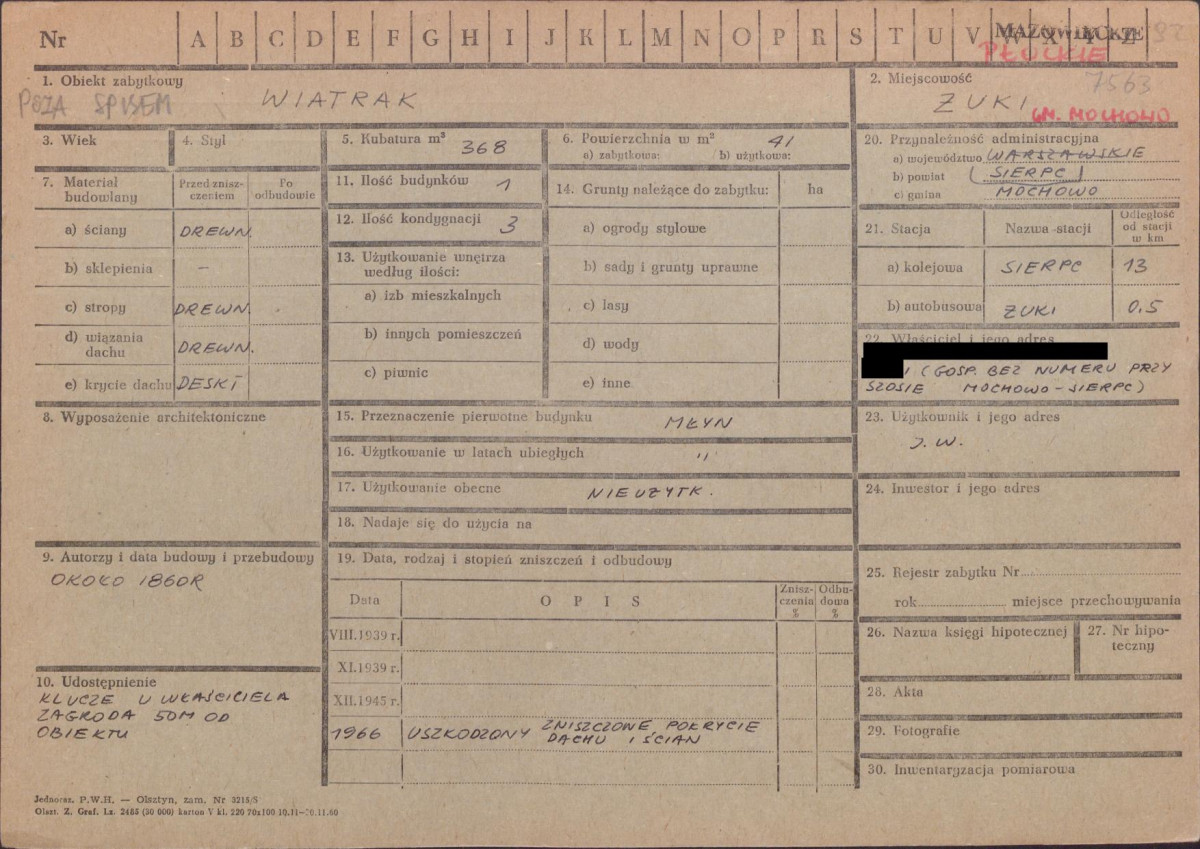 Nr A B C D E F G H I J K L M N O P R S T U V W X Y Z
MAZOWIECKIE
PŁOCKIE
1. Obiekt zabytkowy
POZA SPISEM
WIATRAK
2. Miejscowość
7563
ŻUKI
GM. MOCHOWO
3. Wiek
4. Styl
5. Kubatura m³ 368
6. Powierzchnia w m² 41
a) zabytkowa: b) użytkowa:
20. Przynależność administracyjna
a) województwo WARSZAWSKIE
b) powiat (SIERPC)
c) gmina MOCHOWO
7. Materiał budowlany
Przed znisz-
czeniem
Po
odbudowie
a) ściany DREWN.
b) sklepienia –
c) stropy DREWN.
d) wiązania
dachu DREWN.
e) krycie dachu DESKI
11. Ilość budynków 1
12. Ilość kondygnacji 3
13. Użytkowanie wnętrza
według ilości:
a) izb mieszkalnych
b) innych pomieszczeń
c) piwnic
14. Grunty należące do zabytku: ha
a) ogrody stylowe
b) sady i grunty uprawne
c) lasy
d) wody
e) inne
21. Stacja
Nazwa stacji
Odległość
od stacji
w km
a) kolejowa SIERPC 13
b) autobusowa ŻUKI 0,5
22. Właściciel i jego adres
I (GOSP. BEZ NUMERU PRZY
SZOSIE MOCHOWO-SIERPC)
8. Wyposażenie architektoniczne
15. Przeznaczenie pierwotne budynku MŁYN
16. Użytkowanie w latach ubiegłych "
17. Użytkowanie obecne NIEUŻYTK.
18. Nadaje się do użycia na
23. Użytkownik i jego adres
J. W.
24. Inwestor i jego adres
9. Autorzy i data budowy i przebudowy
OKOŁO 1860R
19. Data, rodzaj i stopień zniszczeń i odbudowy
Data
OPIS
Znisz-
czenia
%
Odbu-
dowa
%
VIII.1939 r.
XI.1939 r.
XII.1945 r.
1966 USZKODZONY ZNISZCZONE POKRYCIE
DACHU I ŚCIAN
25. Rejestr zabytku Nr
rok miejsce przechowywania
26. Nazwa księgi hipotecznej
27. Nr hipo-
teczny
28. Akta
29. Fotografie
30. Inwentaryzacja pomiarowa
10. Udostępnienie
KLUCZE U WŁAŚCICIELA
ZAGRODA 50M OD
OBIEKTU
Jednoraz. P.W.H. — Olsztyn, zam. Nr 3215/S
Olszt. Z. Graf. Lz. 2485 (50 000) karton V kl. 220 70x100 10.11—